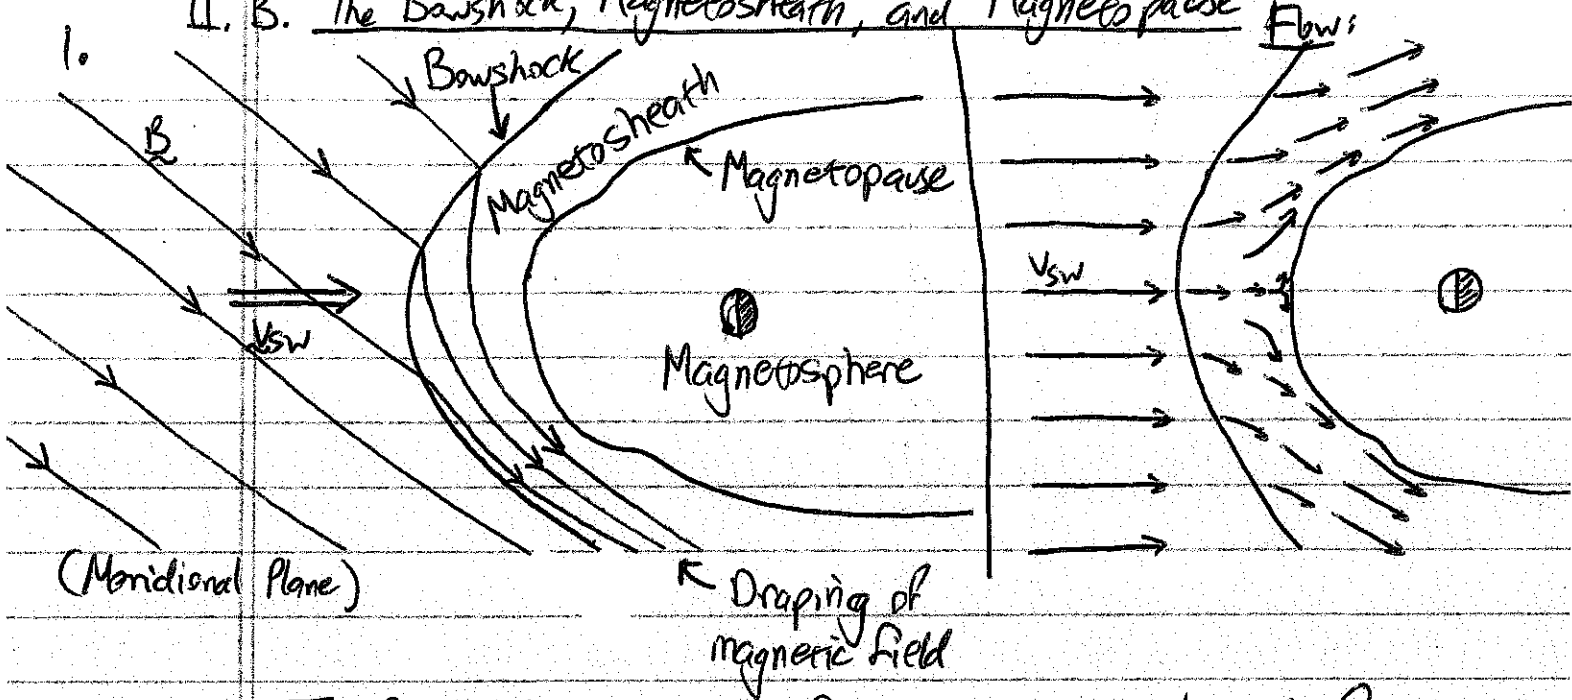 II. B. The Bowshock, Magnetosheath, and Magnetopause
1.
Flow:
Bowshock
B
Magnetosheath
Magnetopause
V_SW
V_SW
Magnetosphere
(Meridional Plane)
Draping of
magnetic field